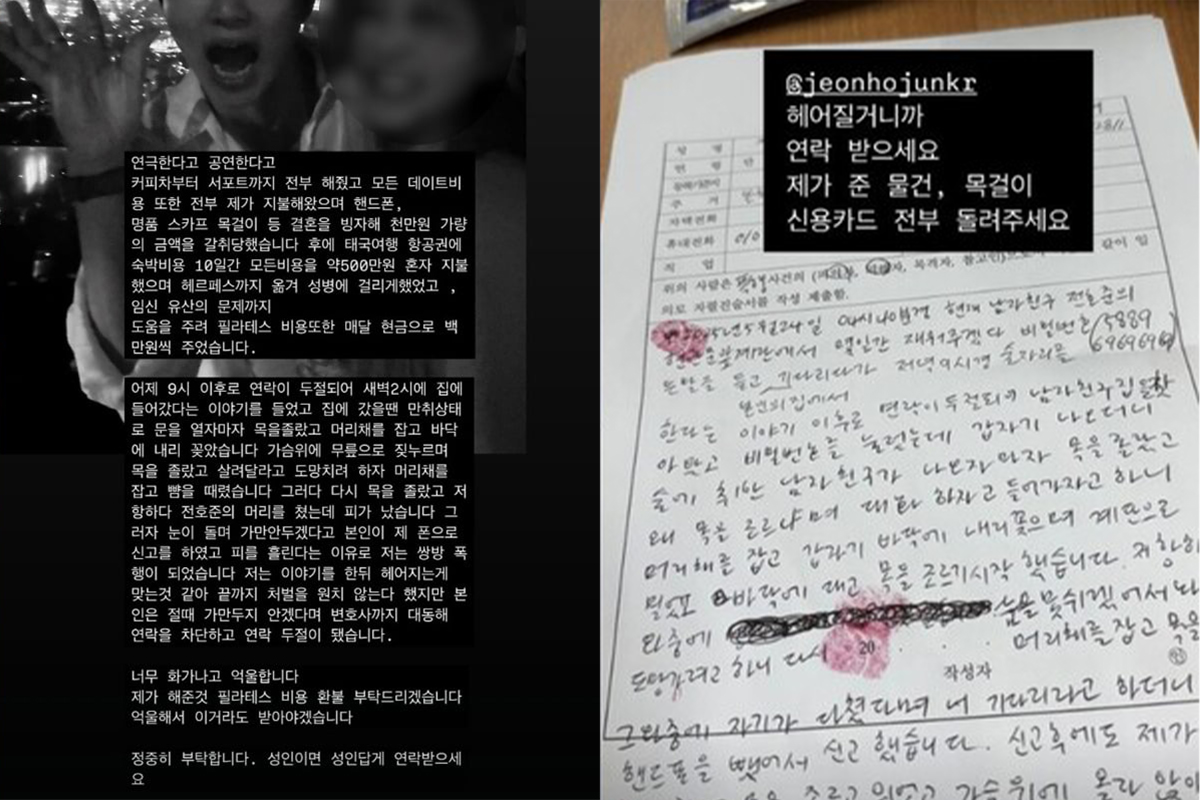 연극한다고 공연한다고
커피차부터 서포트까지 전부 해줬고 모든 데이트비
용 또한 전부 제가 지불해왔으며 핸드폰,
명품 스카프 목걸이 등 결혼을 빙자해 천만원 가량
의 금액을 갈취당했습니다 후에 태국여행 항공권에
숙박비용 10일간 모든비용을 약500만원 혼자 지불
했으며 헤르페스까지 옮겨 성병에 걸리게했었고 ,
임신 유산의 문제까지
도움을 주려 필라테스 비용또한 매달 현금으로 백
만원씩 주었습니다.
어제 9시 이후로 연락이 두절되어 새벽2시에 집에
들어갔다는 이야기를 들었고 집에 갔을땐 만취상태
로 문을 열자마자 목을졸랐고 머리채를 잡고 바닥
에 내리 꽂았습니다 가슴위에 무릎으로 짖누르며
목을 졸랐고 살려달라고 도망치려 하자 머리채를
잡고 뺨을 때렸습니다 그러다 다시 목을 졸랐고 저
항하다 전호준의 머리를 쳤는데 피가 났습니다 그
러자 눈이 돌며 가만안두겠다고 본인이 제 폰으로
신고를 하였고 피를 흘린다는 이유로 저는 쌍방 폭
행이 되었습니다 저는 이야기를 한뒤 헤어지는게
맞는것 같아 끝까지 처벌을 원치 않는다 했지만 본
인은 절때 가만두지 안겠다며 변호사까지 대동해
연락을 차단하고 연락 두절이 됐습니다.
너무 화가나고 억울합니다
제가 해준것 필라테스 비용 환불 부탁드리겠습니다
억울해서 이거라도 받아야겠습니다
정중히 부탁합니다. 성인이면 성인답게 연락받으세
요
@jeonhojunkr
헤어질거니까
연락 받으세요
제가 준 물건, 목걸이
신용카드 전부 돌려주세요
성 명
연 령
주 거
자택전화
휴대전화 010
직 업 같이 임
위의 사람은 폭행사건의 (피의자, 피해자, 목격자, 참고인)으로
의로 자필진술서를 작성 제출함.
5년 5월 24일 현재 남자친구 전호준의
비밀번호 (5889
말을 듣고 기다리다가 저녁 9시경 술자리를 696969
본인의 집에서
한다는 이야기 이후로 연락이 두절되어 남자친구집을 찾
아갔고 비밀번호를 눌렀는데 갑자기 나오더니
술이 취한 남자친구가 나오자마자 목을 졸랐고
왜 목을 조르냐며 대화 하자고 들어가자고 하니
머리채를 잡고 갑자기 바닥에 내리꽂으며 계단으로
밀었고 바닥에 대고 목을 조르기시작 했습니다. 저항하
와중에 숨을 못쉬겠어서
도망가려고 하니 다시 20 . . . 머리채를 잡고 목을
작성자
그와중에 자기가 다쳤다며 너 기다리라고 하더니
핸드폰을 뺏어서 신고 했습니다. 신고후에도 제가
가슴위에 올라